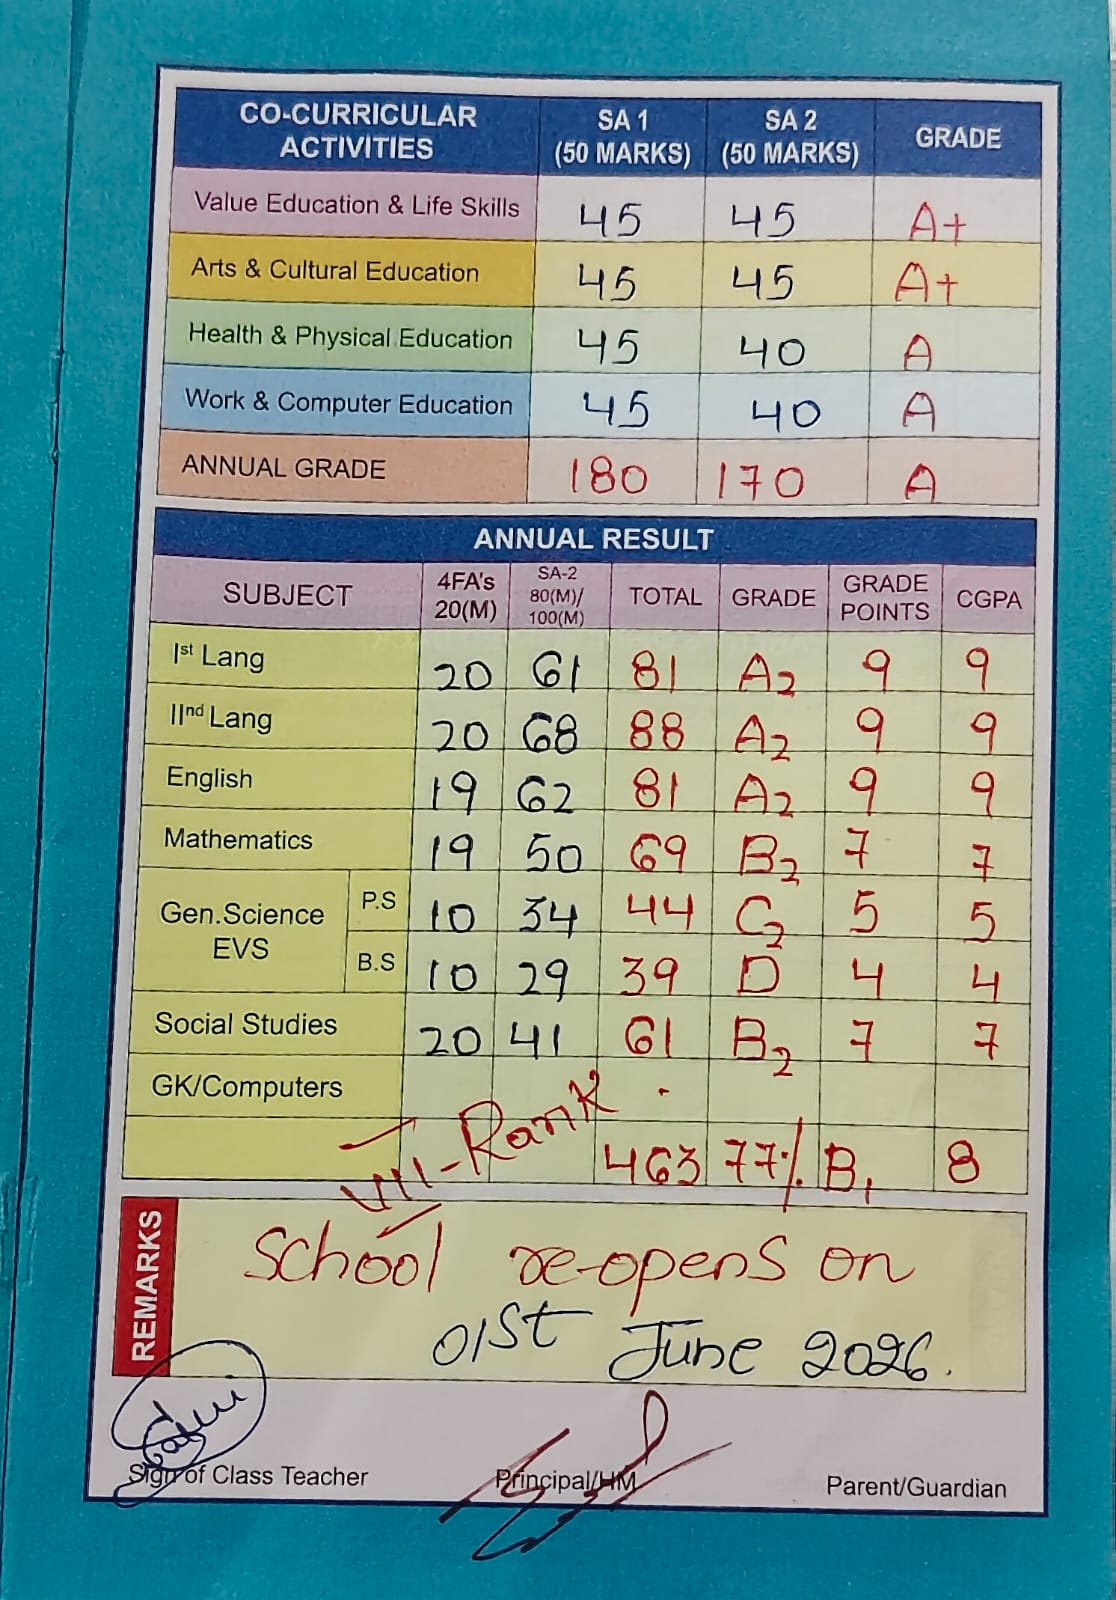 CO-CURRICULAR ACTIVITIES SA 1 (50 MARKS) SA 2 (50 MARKS) GRADE
Value Education & Life Skills 45 45 A+
Arts & Cultural Education 45 45 A+
Health & Physical Education 45 40 A
Work & Computer Education 45 40 A
ANNUAL GRADE 180 170 A
ANNUAL RESULT
SUBJECT 4FA's 20(M) SA-2 80(M)/ 100(M) TOTAL GRADE GRADE POINTS CGPA
Ist Lang 20 61 81 A2 9 9
IInd Lang 20 68 88 A2 9 9
English 19 62 81 A2 9 9
Mathematics 19 50 69 B2 7 7
Gen.Science EVS P.S 10 34 44 C2 5 5
B.S 10 29 39 D 4 4
Social Studies 20 41 61 B2 7 7
GK/Computers
VIII-Rank 463 77% B1 8
REMARKS
School re-opens on
01st June 2026.
Sign of Class Teacher Principal/HM Parent/Guardian